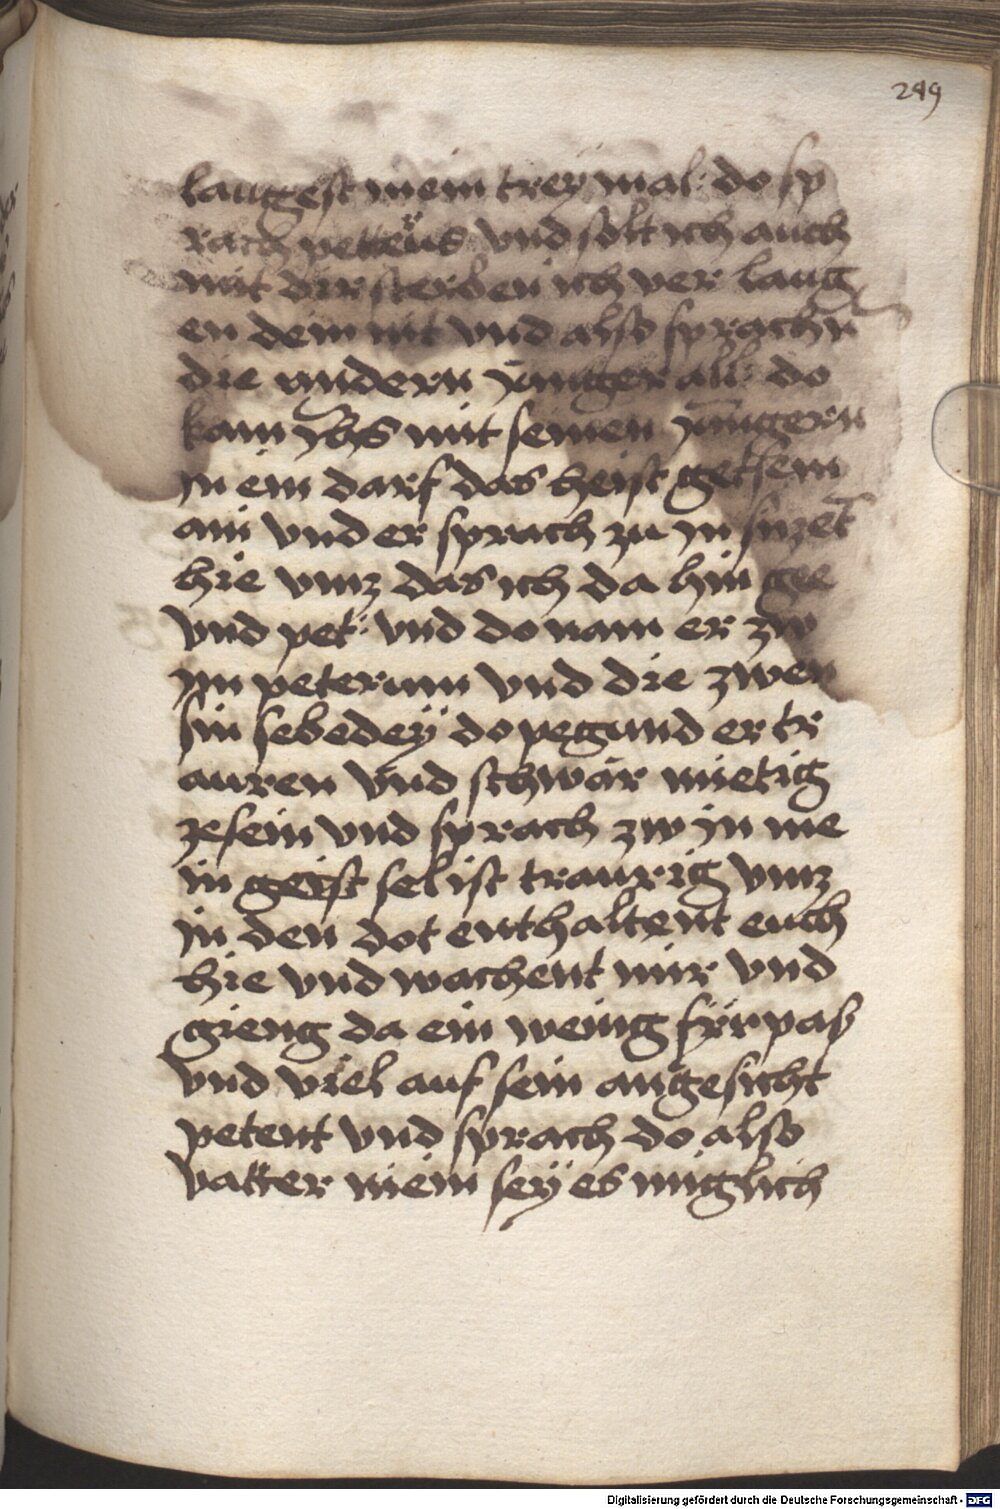 249
laugest mein trey mal: do sp
rach petterus vnd solt ich auch
mit dir sterben ich ver laug
en dein nit vnd also sprachn
die andern junger all: do
kam yhs mit seinen jungern
in ein darf das heist getsem
ani vnd er sprach zu in sizet
hie vmz das ich da hin gee
vnd pet: vnd do nam er zw
im peterum vnd die zwen
sin sebedeÿ do pegund er tr
auren vnd schwar mietig
ze sein vnd sprach zw in me
in geist sel ist traurig vmz
in den dot enthaltent euch
hie vnd wachent mir vnd
gieng da ein wenig fyrpas
vnd viel auf sein angesicht
petent vnd sprach do also
vatter miein seÿ es miglich
Digitalisierung gefördert durch die Deutsche Forschungsgemeinschaft - DFG